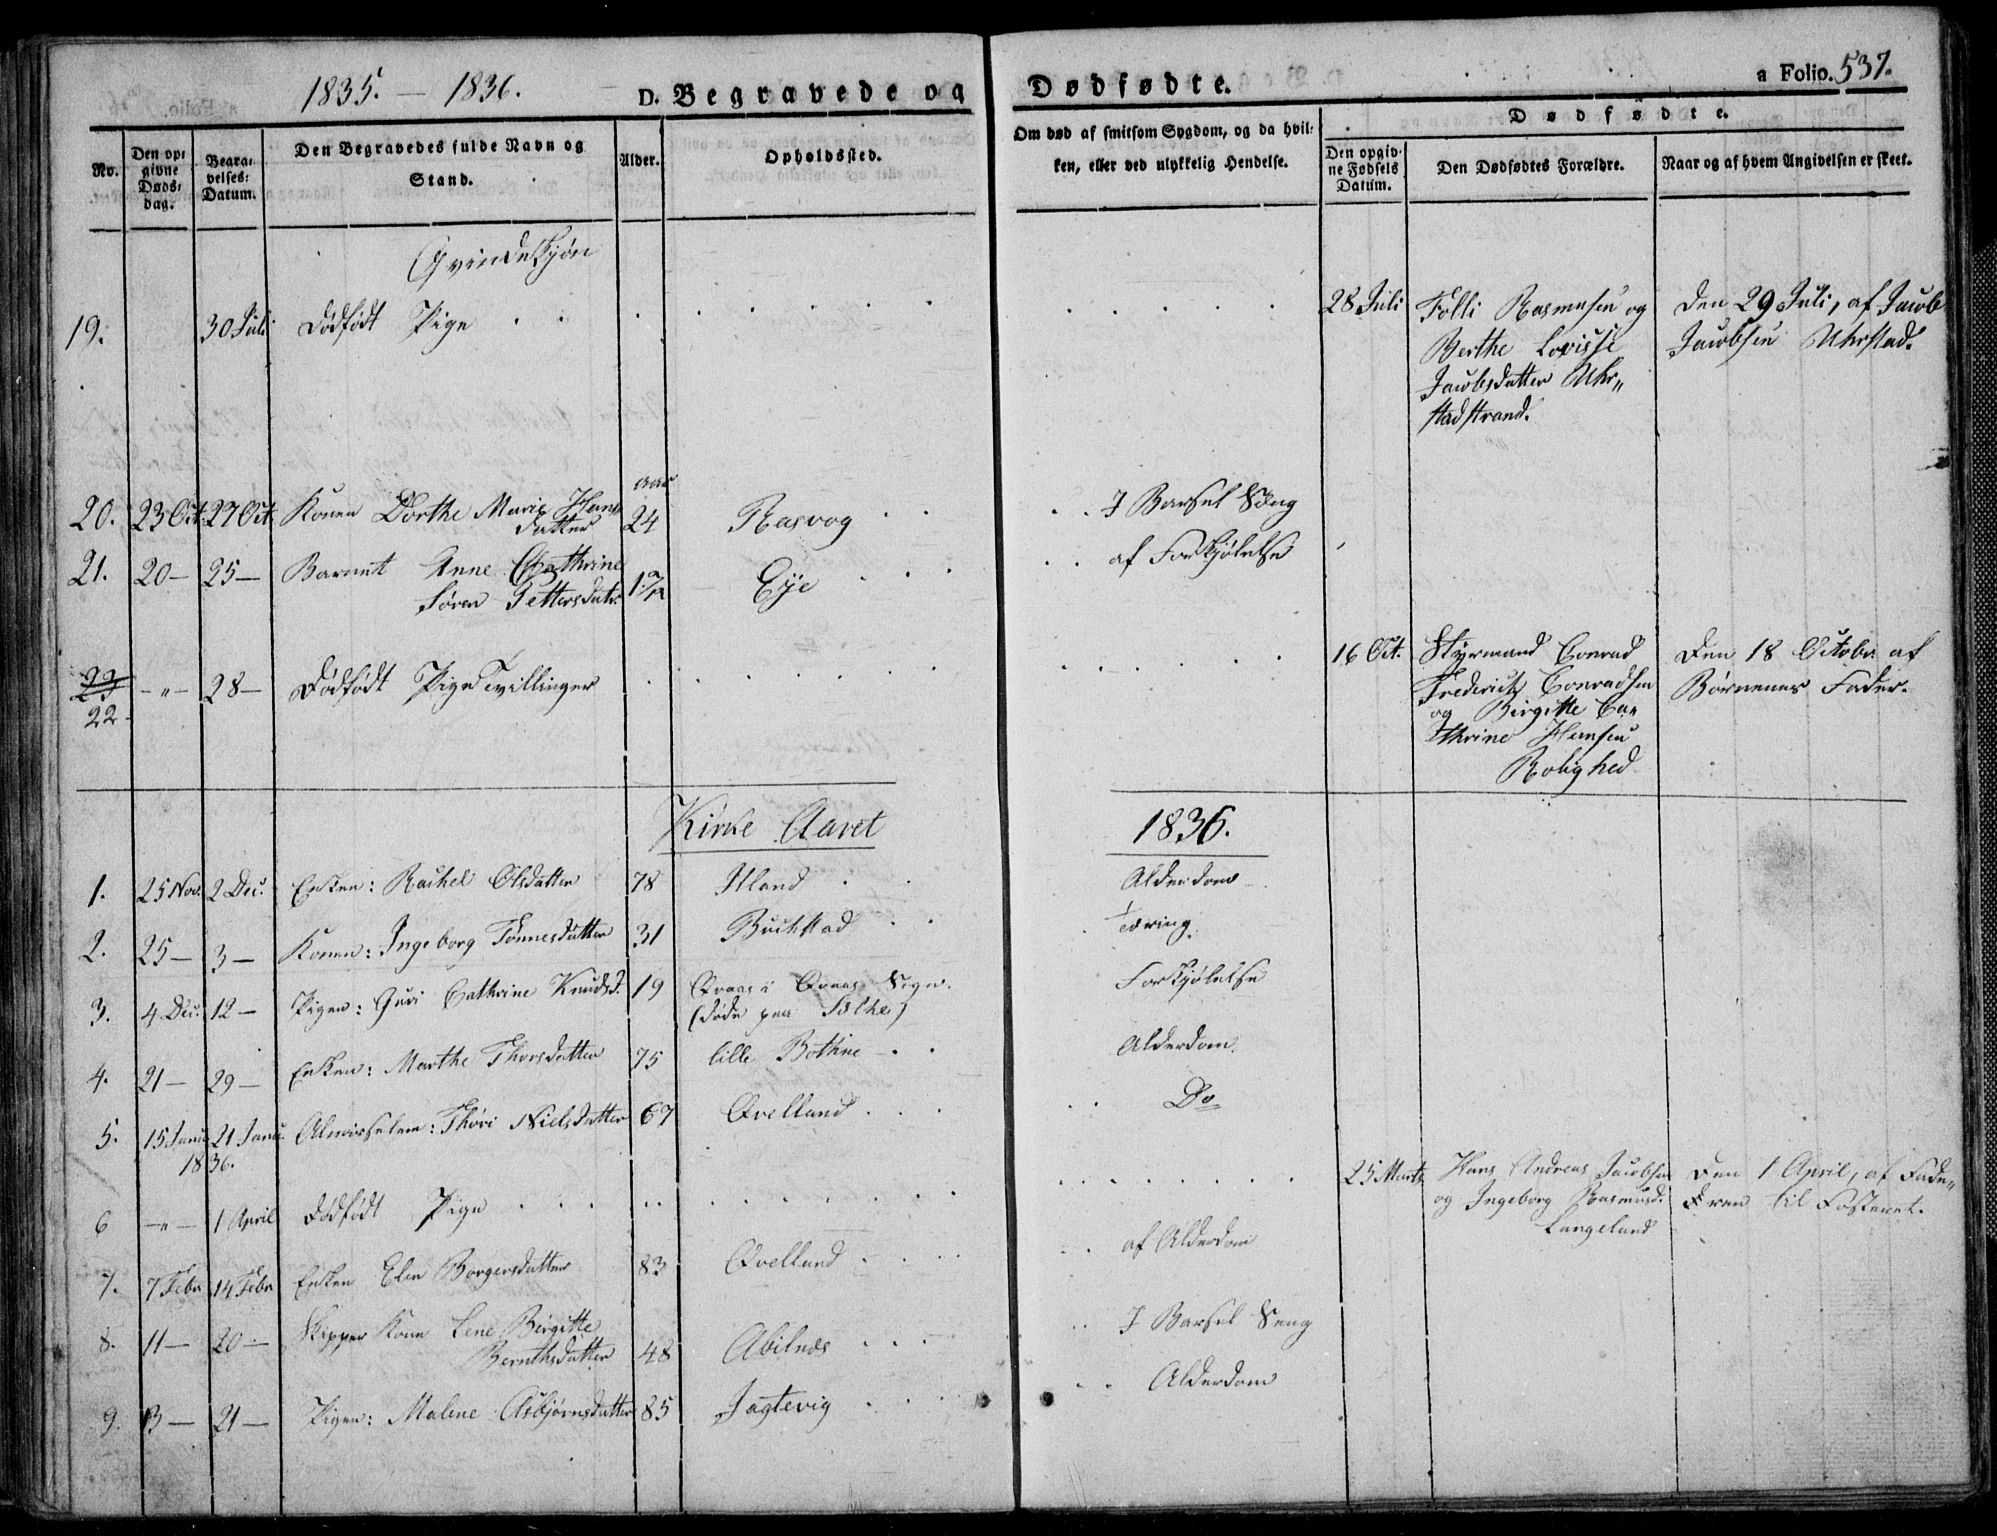 1835. — 1836.
D. Begravede og Dødfødte.
a Folio. 537.
No.
Den opgivne Dødsdag.
Begravelses: Datum.
Den Begravedes fulde Navn og Stand.
Alder.
Opholdssted.
Om død af smitsom Sygdom, og da hvilken, eller ved ulykkelig Hendelse.
Dødfødte.
Den opgivne Fødsels Datum.
Den Dødfødtes Forældre.
Naar og af hvem Angivelsen er skeet.
Qvindekjøn
19. 30 Juli Dødfødt Pige 28 Juli Tolli Rasmusen og Den 29 Juli, af Jacob
Berthe Lovisse Jacobsen Uhrstad.
Jacobsdatter Uhr„
stadstrand.
aar
20. 23 Oct. 27 Oct. Konen Dorthe Marie Hans 24 Rasvog I Barsel Sæng
datter
21. 20— 25— Barnet Anne Cathrine Eÿe af Forkjølelse
Søren Pettersdatr.
23 —„— 28— Dødfødt Pige Tvillinger 16 Oct. Styrmand Conrad Den 18 October af
22 Frederick Conradsen Børnenes Fader.
og Birgitte Ca„
thrine Hansen
Rolighed
Kirke Aaret 1836.
1. 25 Nov. 2 Dec. Enken: Rachel Olsdatter 78 Iland Alderdom
2. 25— 3— Konen: Ingeborg Tønnesdatter 31 Buchstad Tæring
3. 4 Dec. 12— Pigen: Guri Cathrine Knudsd. 19 Qvaas i Qvaas Sogn. Forkjølelse
(døde paa )
4. 21— 29— Enken: Marthe Thorsdatter 75 lille Bothne Alderdom.
5. 15 Janu. 21 Janu. Almisselem: Thøri Nielsdatter 67 Qvelland Do
1836.
6 —„— 1 April Dødfødt Pige 25 Marts Hans Andreas Jacobsen Den 1 April, af Fade„
og Ingeborg Rasmusd. ren til Fosteret.
Langeland
7. 7 Febr 14 Febr Enken Elen Borgersdatter 83 Qvelland af Alderdom
8. 11— 20— Skipper Kone Lene Birgitte I Barsel Seng
Bernthsdatter 48 Abilnæs
9. 13— 21— Pigen: Malene Asbjørnsdatter 85 Jagtevig Alderdom